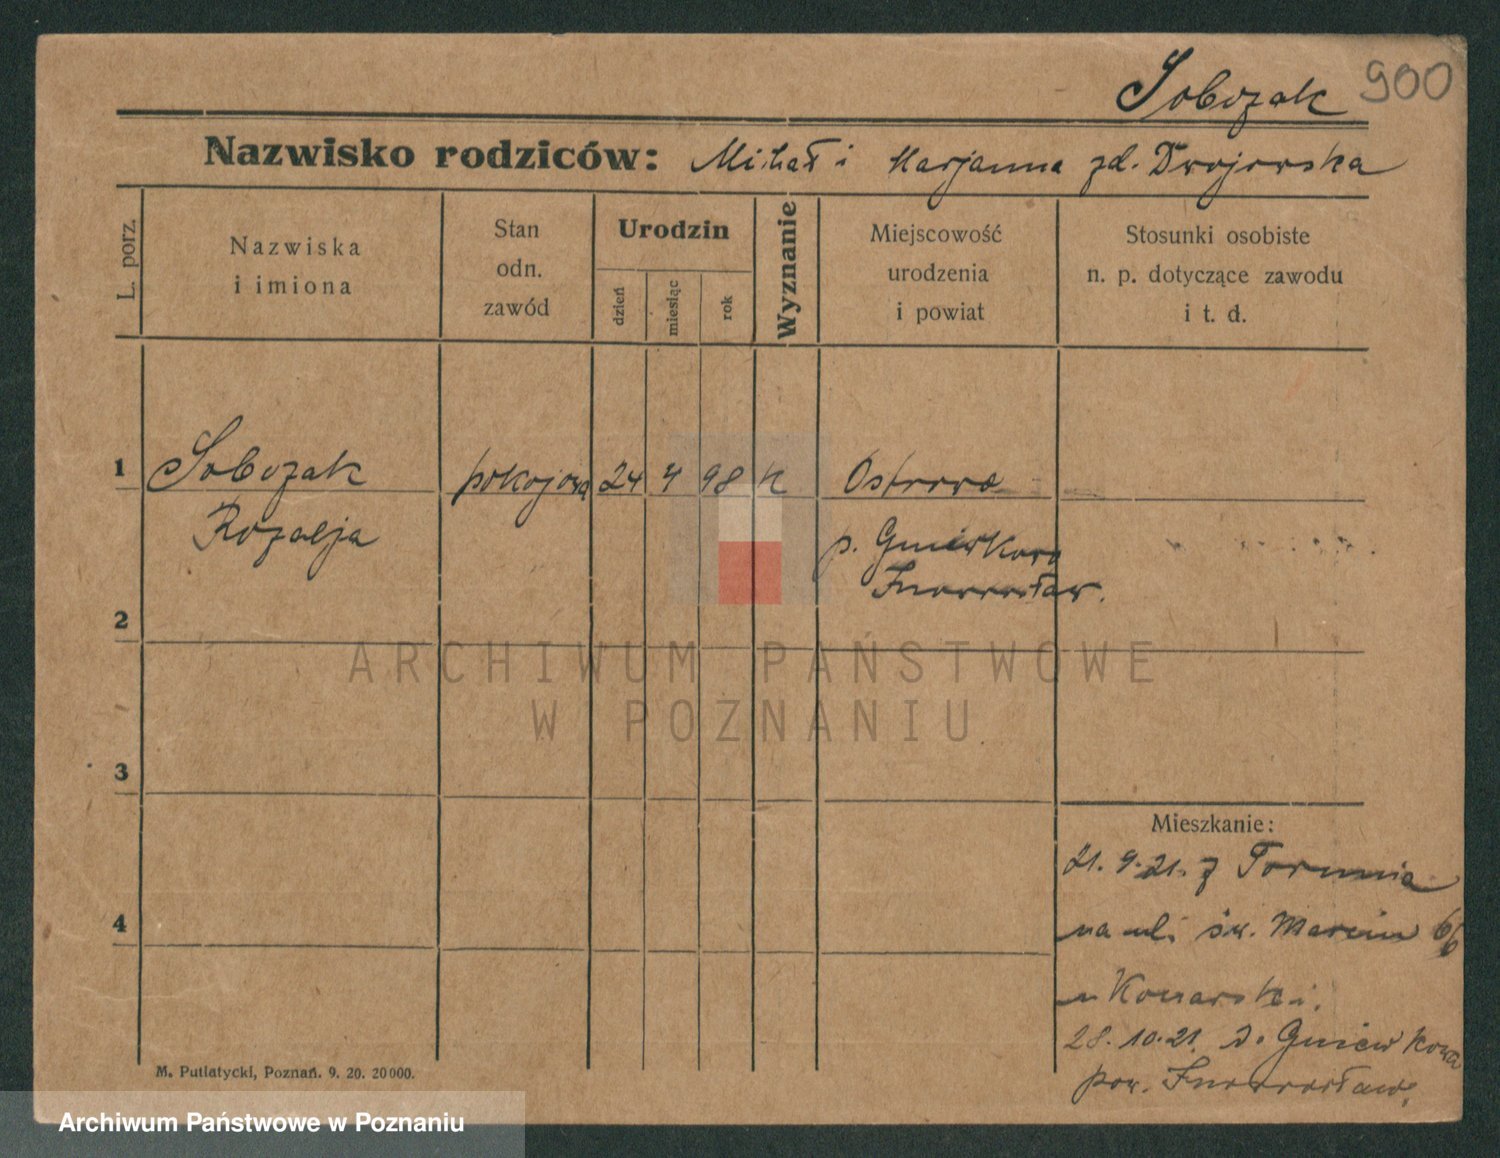 Sobczak 900
Nazwisko rodziców: Michał i Marjanna zd. Dwojowska
L. porz.
Nazwiska
i imiona
Stan
odn.
zawód
Urodzin
dzień
miesiąc
rok
Wyznanie
Miejscowość
urodzenia
i powiat
Stosunki osobiste
n. p. dotyczące zawodu
i t. d.
1 Sobczak pokojowa 24 4 98 k Ostrowo
Rozalja p. Gniewkowo
Inowrocław.
2
ARCHIWUM PAŃSTWOWE
W POZNANIU
3
Mieszkanie:
21.9.21. z Torunia
4
na ul. św. Marcin 6/6
u Konarski.
28.10.21. do Gniewkowa
pow. Inowrocław.
M. Putiatycki, Poznań. 9. 20. 20000.
Archiwum Państwowe w Poznaniu